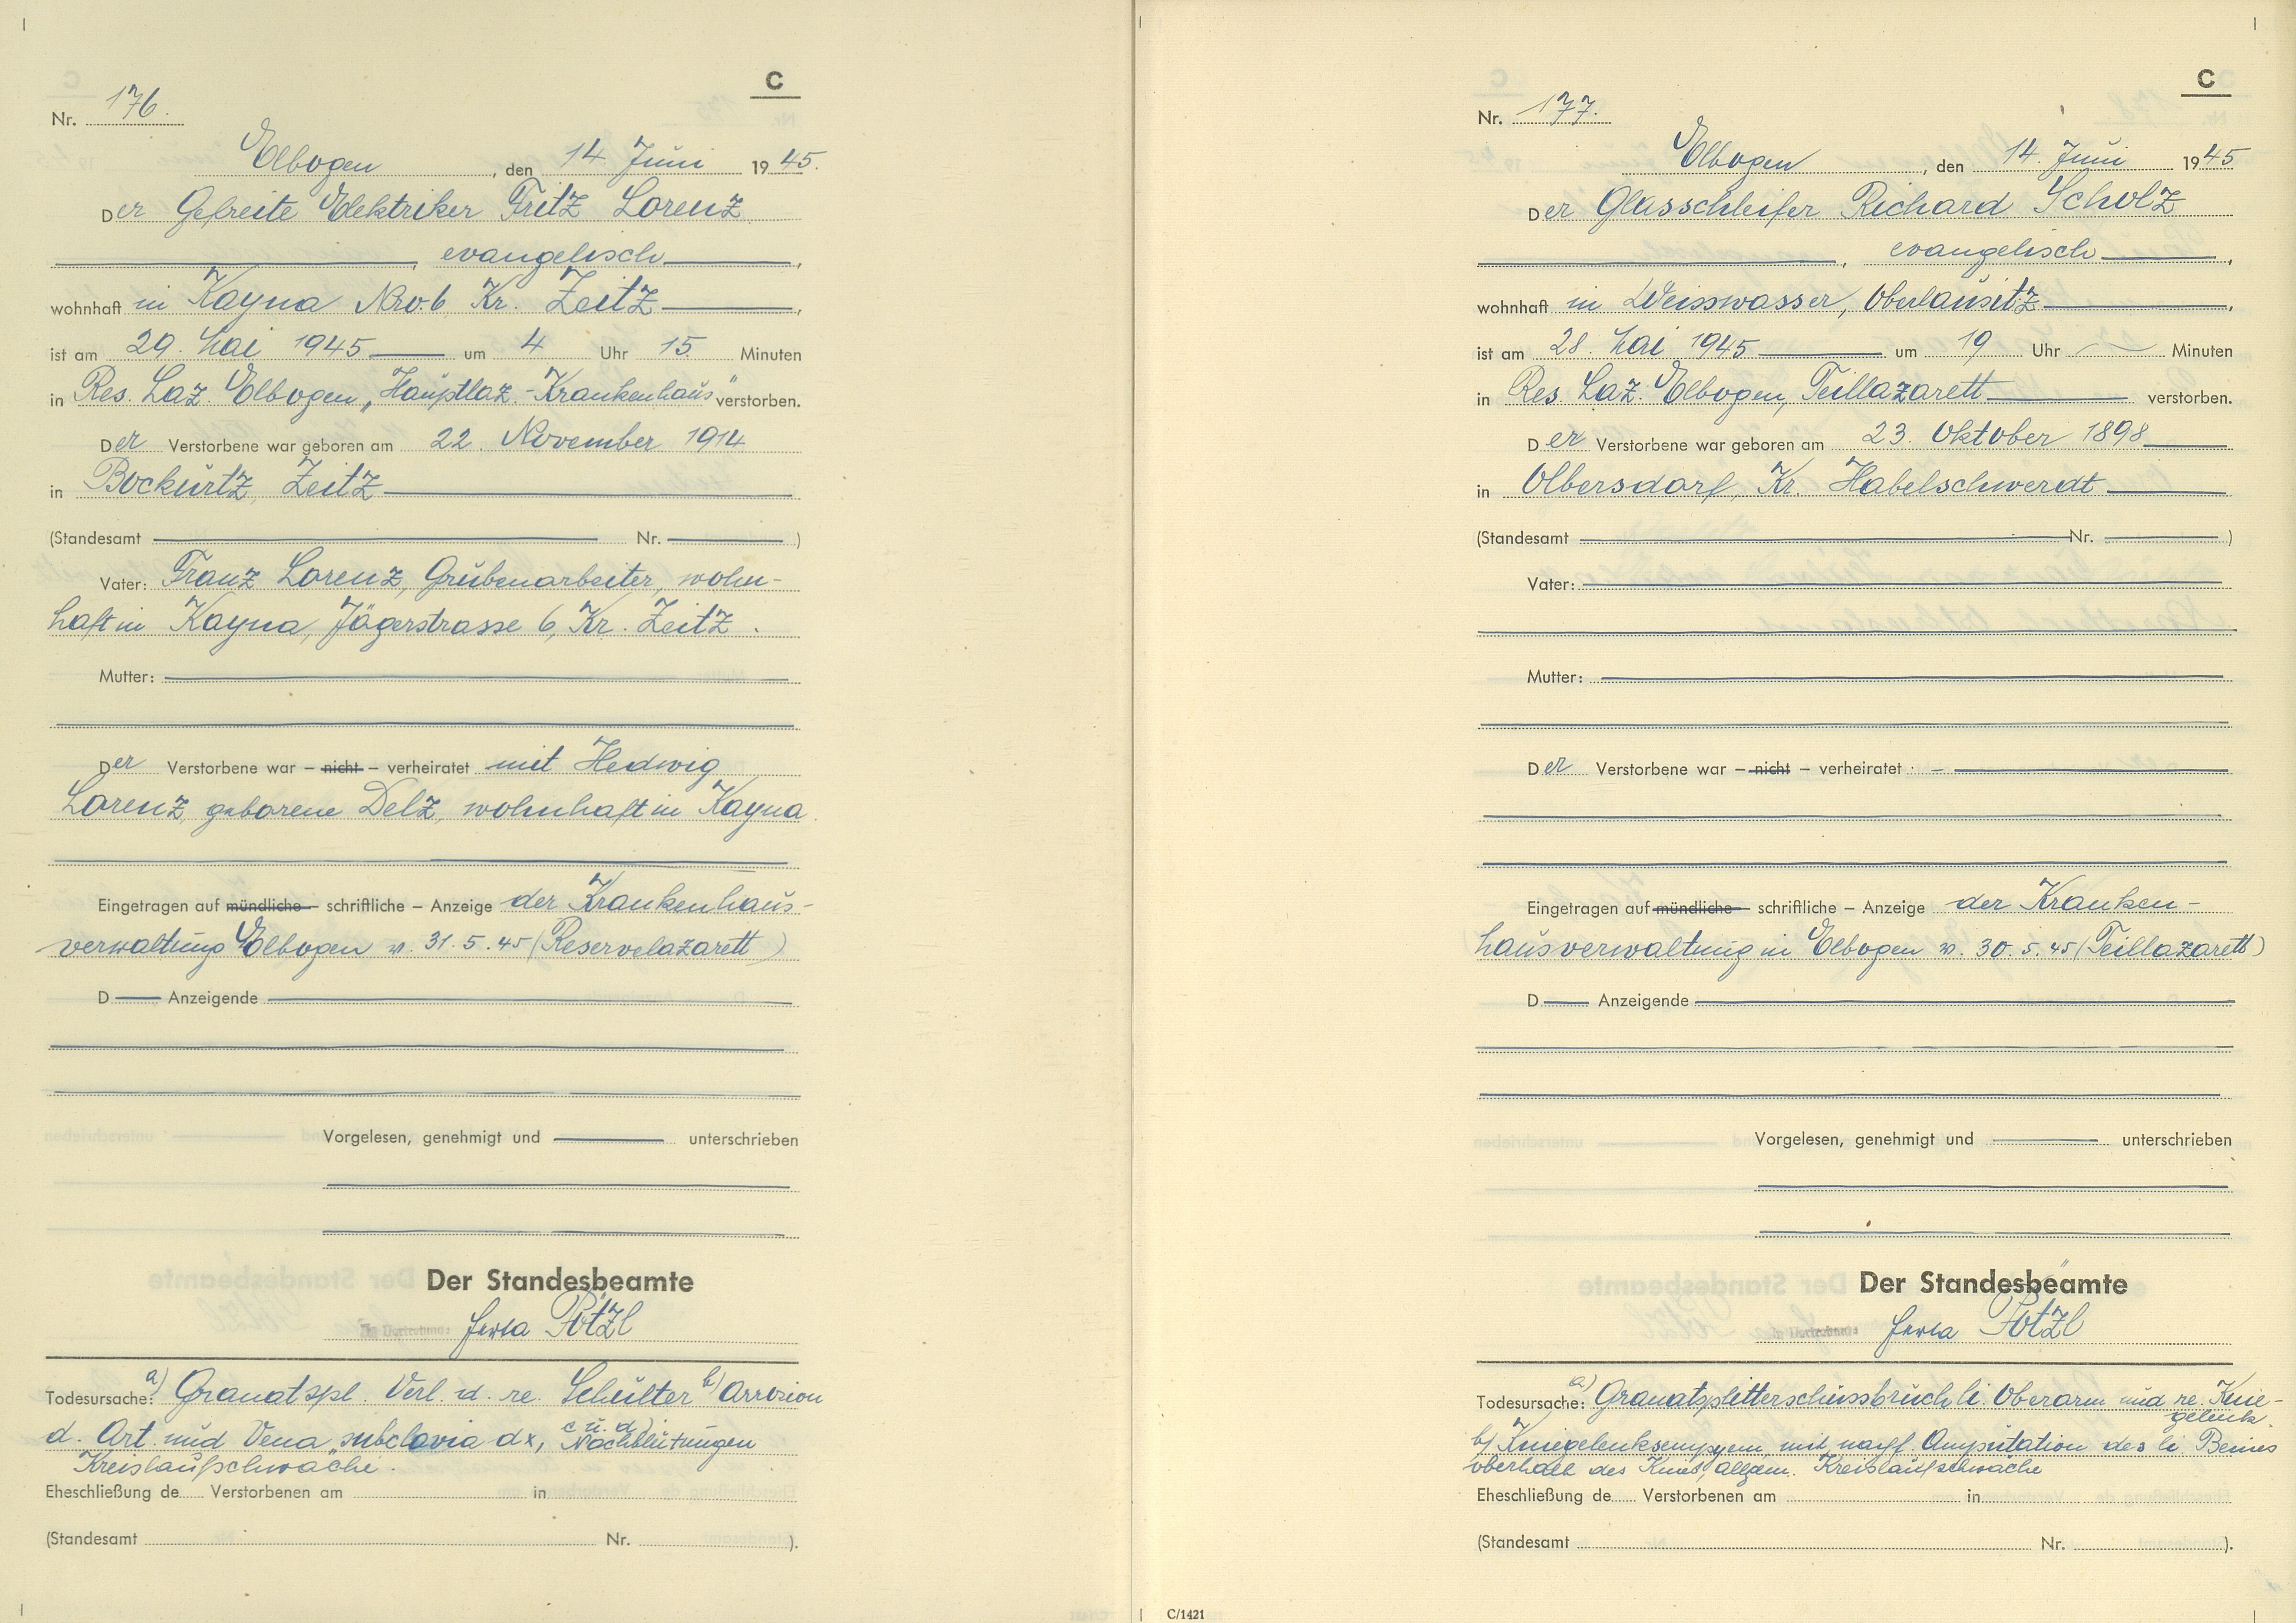 C
Nr. 176.
Elbogen, den 14. Juni 1945.
Der Gefreite Elektriker Fritz Lorenz
, evangelisch,
wohnhaft in Kayna Nro. 6 Kr. Zeitz,
ist am 29. Mai 1945 um 4 Uhr 15 Minuten
in Res. Laz. Elbogen „Hauptlaz.-Krankenhaus" verstorben.
Der Verstorbene war geboren am 22. November 1914
in Bockwitz, Zeitz
(Standesamt Nr. )
Vater: Franz Lorenz, Grubenarbeiter, wohn-
haft in Kayna, Jägerstrasse 6, Kr. Zeitz.
Mutter:
Der Verstorbene war – nicht – verheiratet mit Hedwig
Lorenz, geborene Delz, wohnhaft in Kayna
Eingetragen auf mündliche – schriftliche – Anzeige der Krankenhaus-
verwaltung Elbogen v. 31.5.45 (Reservelazarett)
D Anzeigende
Vorgelesen, genehmigt und unterschrieben
Der Standesbeamte
In Vertretung: Pötzl
Todesursache: a) Granatspl. Verl. d. re. Schulter b) Arrosion
d. Art. und Vena subclavia dx, c u. d) Nachblutungen
Kreislaufschwäche.
Eheschließung de Verstorbenen am in
(Standesamt Nr. ).
C
Nr. 177.
Elbogen, den 14. Juni 1945
Der Glasschleifer Richard Scholz
, evangelisch,
wohnhaft in Weisswasser, Oberlausitz,
ist am 28. Mai 1945 um 19 Uhr — Minuten
in Res. Laz. Elbogen, Teillazarett verstorben.
Der Verstorbene war geboren am 23. Oktober 1898
in Olbersdorf, Kr. Habelschwerdt
(Standesamt Nr. )
Vater:
Mutter:
Der Verstorbene war – nicht – verheiratet –
Eingetragen auf mündliche – schriftliche – Anzeige der Kranken-
hausverwaltung in Elbogen v. 30.5.45 (Teillazarett)
D Anzeigende
Vorgelesen, genehmigt und unterschrieben
Der Standesbeamte
In Vertretung: Pötzl
Todesursache: a) Granatsplitterschussbruch li. Oberarm und re. Knie-
gelenk.
b) Kniegelenksempyem mit nachf. Amputation des li Beines
oberhalb des Knies, allgem. Kreislaufschwäche
Eheschließung de Verstorbenen am in
(Standesamt Nr. ).
C/1421